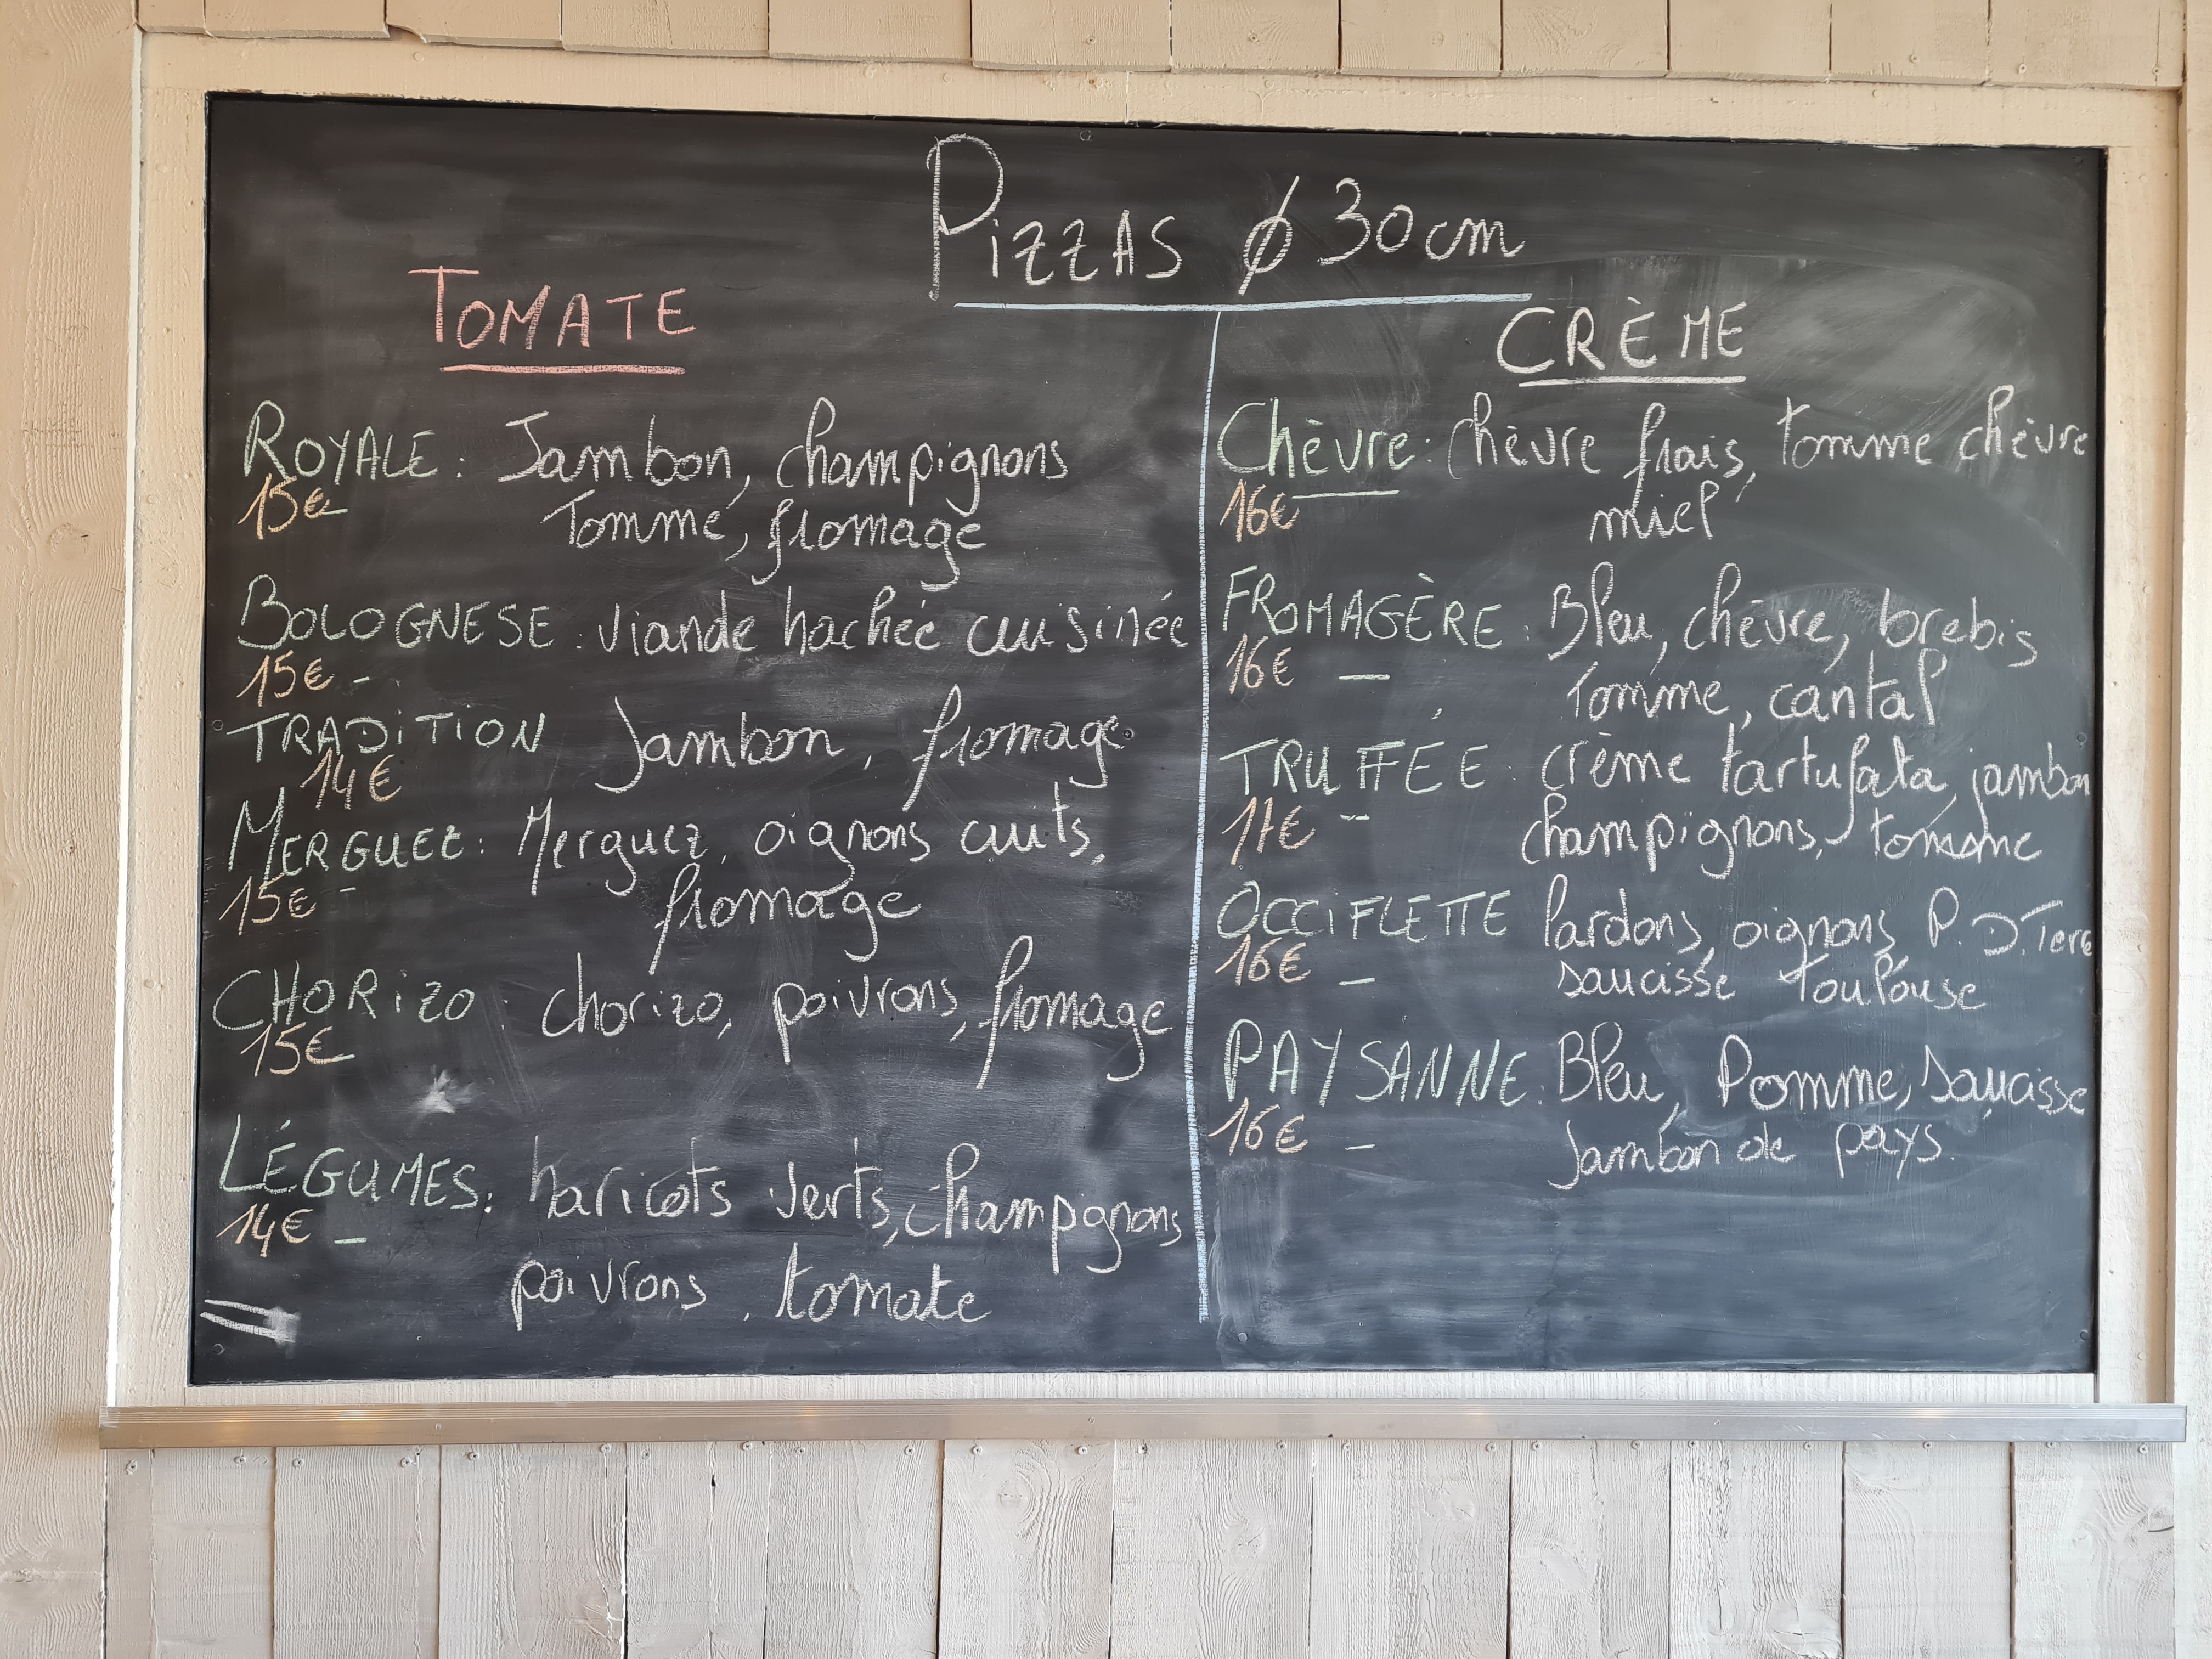 PIZZAS ϕ 30cm
TOMATE
ROYALE : Jambon, champignons
15€ Tomme, fromage
BOLOGNESE : viande hachée cuisinée
15€ -
TRADITION Jambon, fromage
14€
MERGUEZ : Merguez, oignons cuits,
15€ - fromage
CHORIZO : chorizo, poivrons, fromage
15€
LÉGUMES : haricots verts, champignons
14€ - poivrons, tomate
CRÈME
Chèvre : chèvre frais, tomme chèvre
16€ miel
FROMAGÈRE : Bleu, chèvre, brebis
16€ - Tomme, cantal
TRUFFÉE : crème tartufata, jambon
17€ -- champignons, tomme
OCCIFLETTE lardons, oignons, P. D. Terre
16€ - saucisse Toulouse
PAYSANNE : Bleu, Pomme, saucisse
16€ - Jambon de pays.